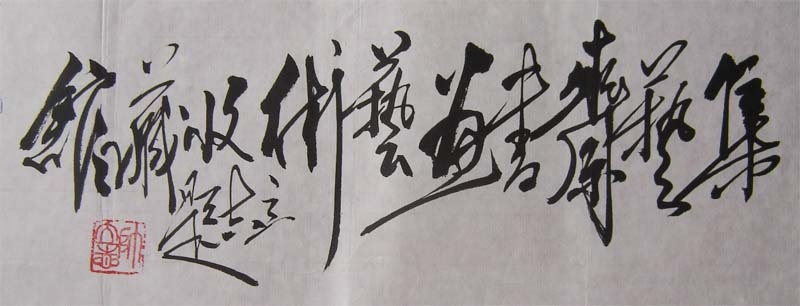 集藝齋書畫藝術收藏館
立志題